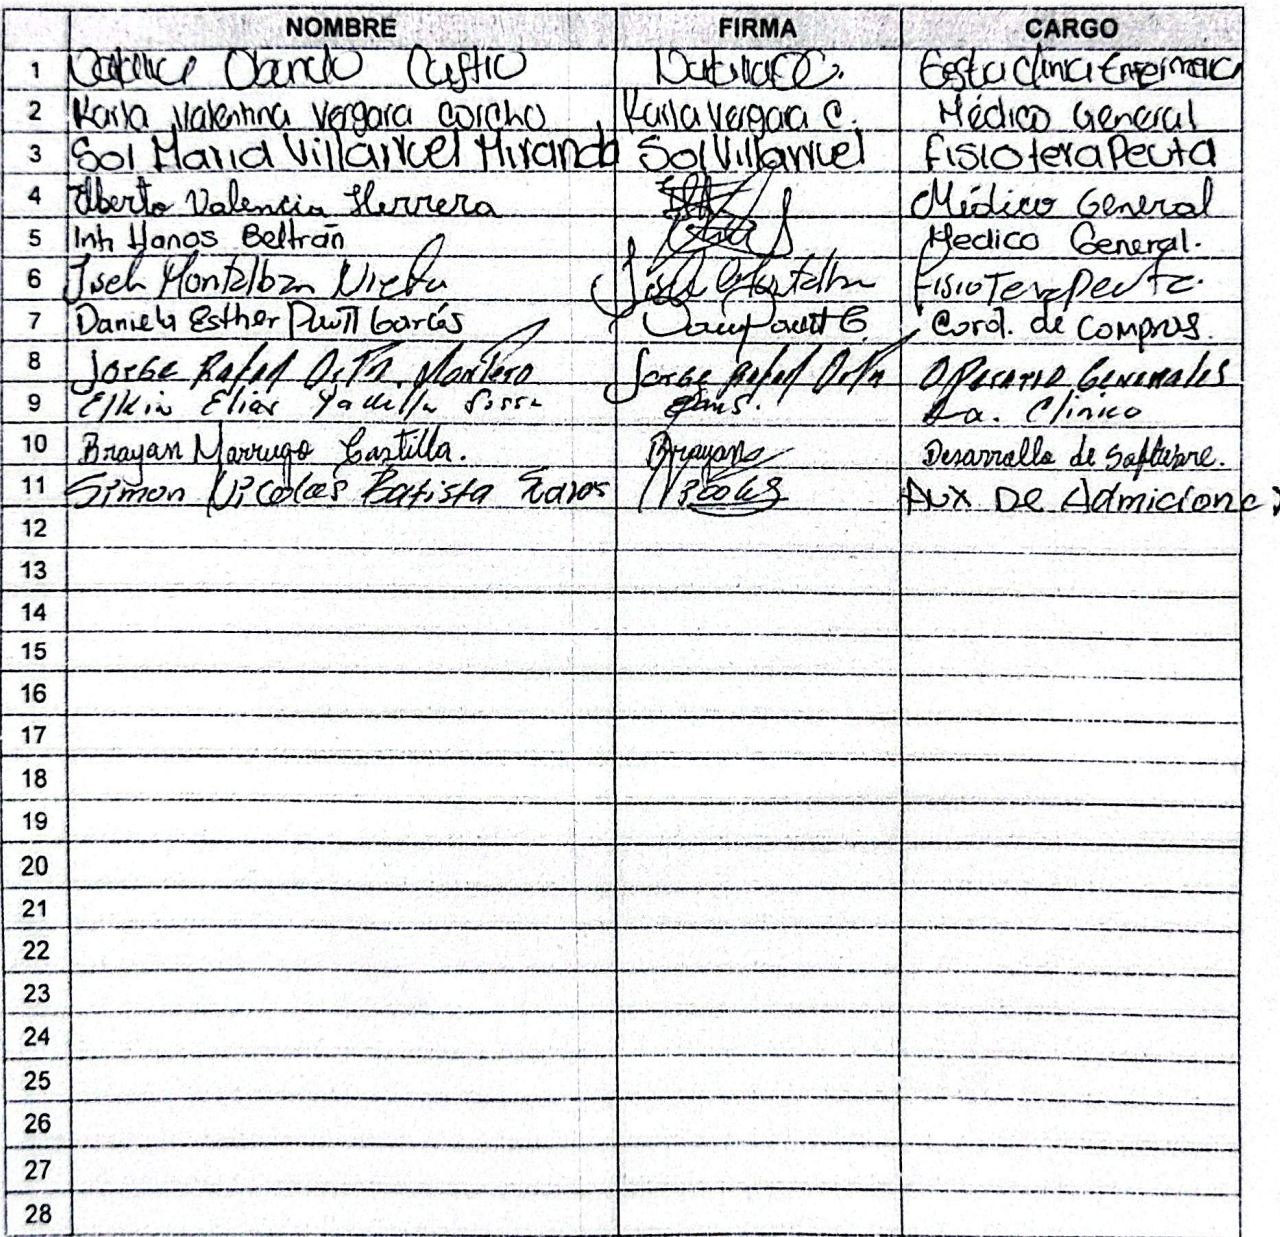 NOMBRE FIRMA CARGO
1 Obando Castro Gesta clinica Enfermera
2 Karla Valentina Vergara Corcho Karla Vergara C. Médico General
3 Sol Maria Villarreal Miranda Sol Villarreal Fisioterapeuta
4 Alberto Valencia Herrera Médico General
5 Hoyos Beltrán Medico General.
6 Isel Montalban Nieto Isel Montalban Fisioterapeuta.
7 Daniela Esther Garcés Cord. de compras.
8 Jorge Rafael Montero Jorge Rafael Operario Generales
9 Elkin Elias Clinico
10 Brayan Marrugo Castilla. Brayan Desarrollo de Software.
11 Simon Nicolas Batista Aux De Admicione
12
13
14
15
16
17
18
19
20
21
22
23
24
25
26
27
28